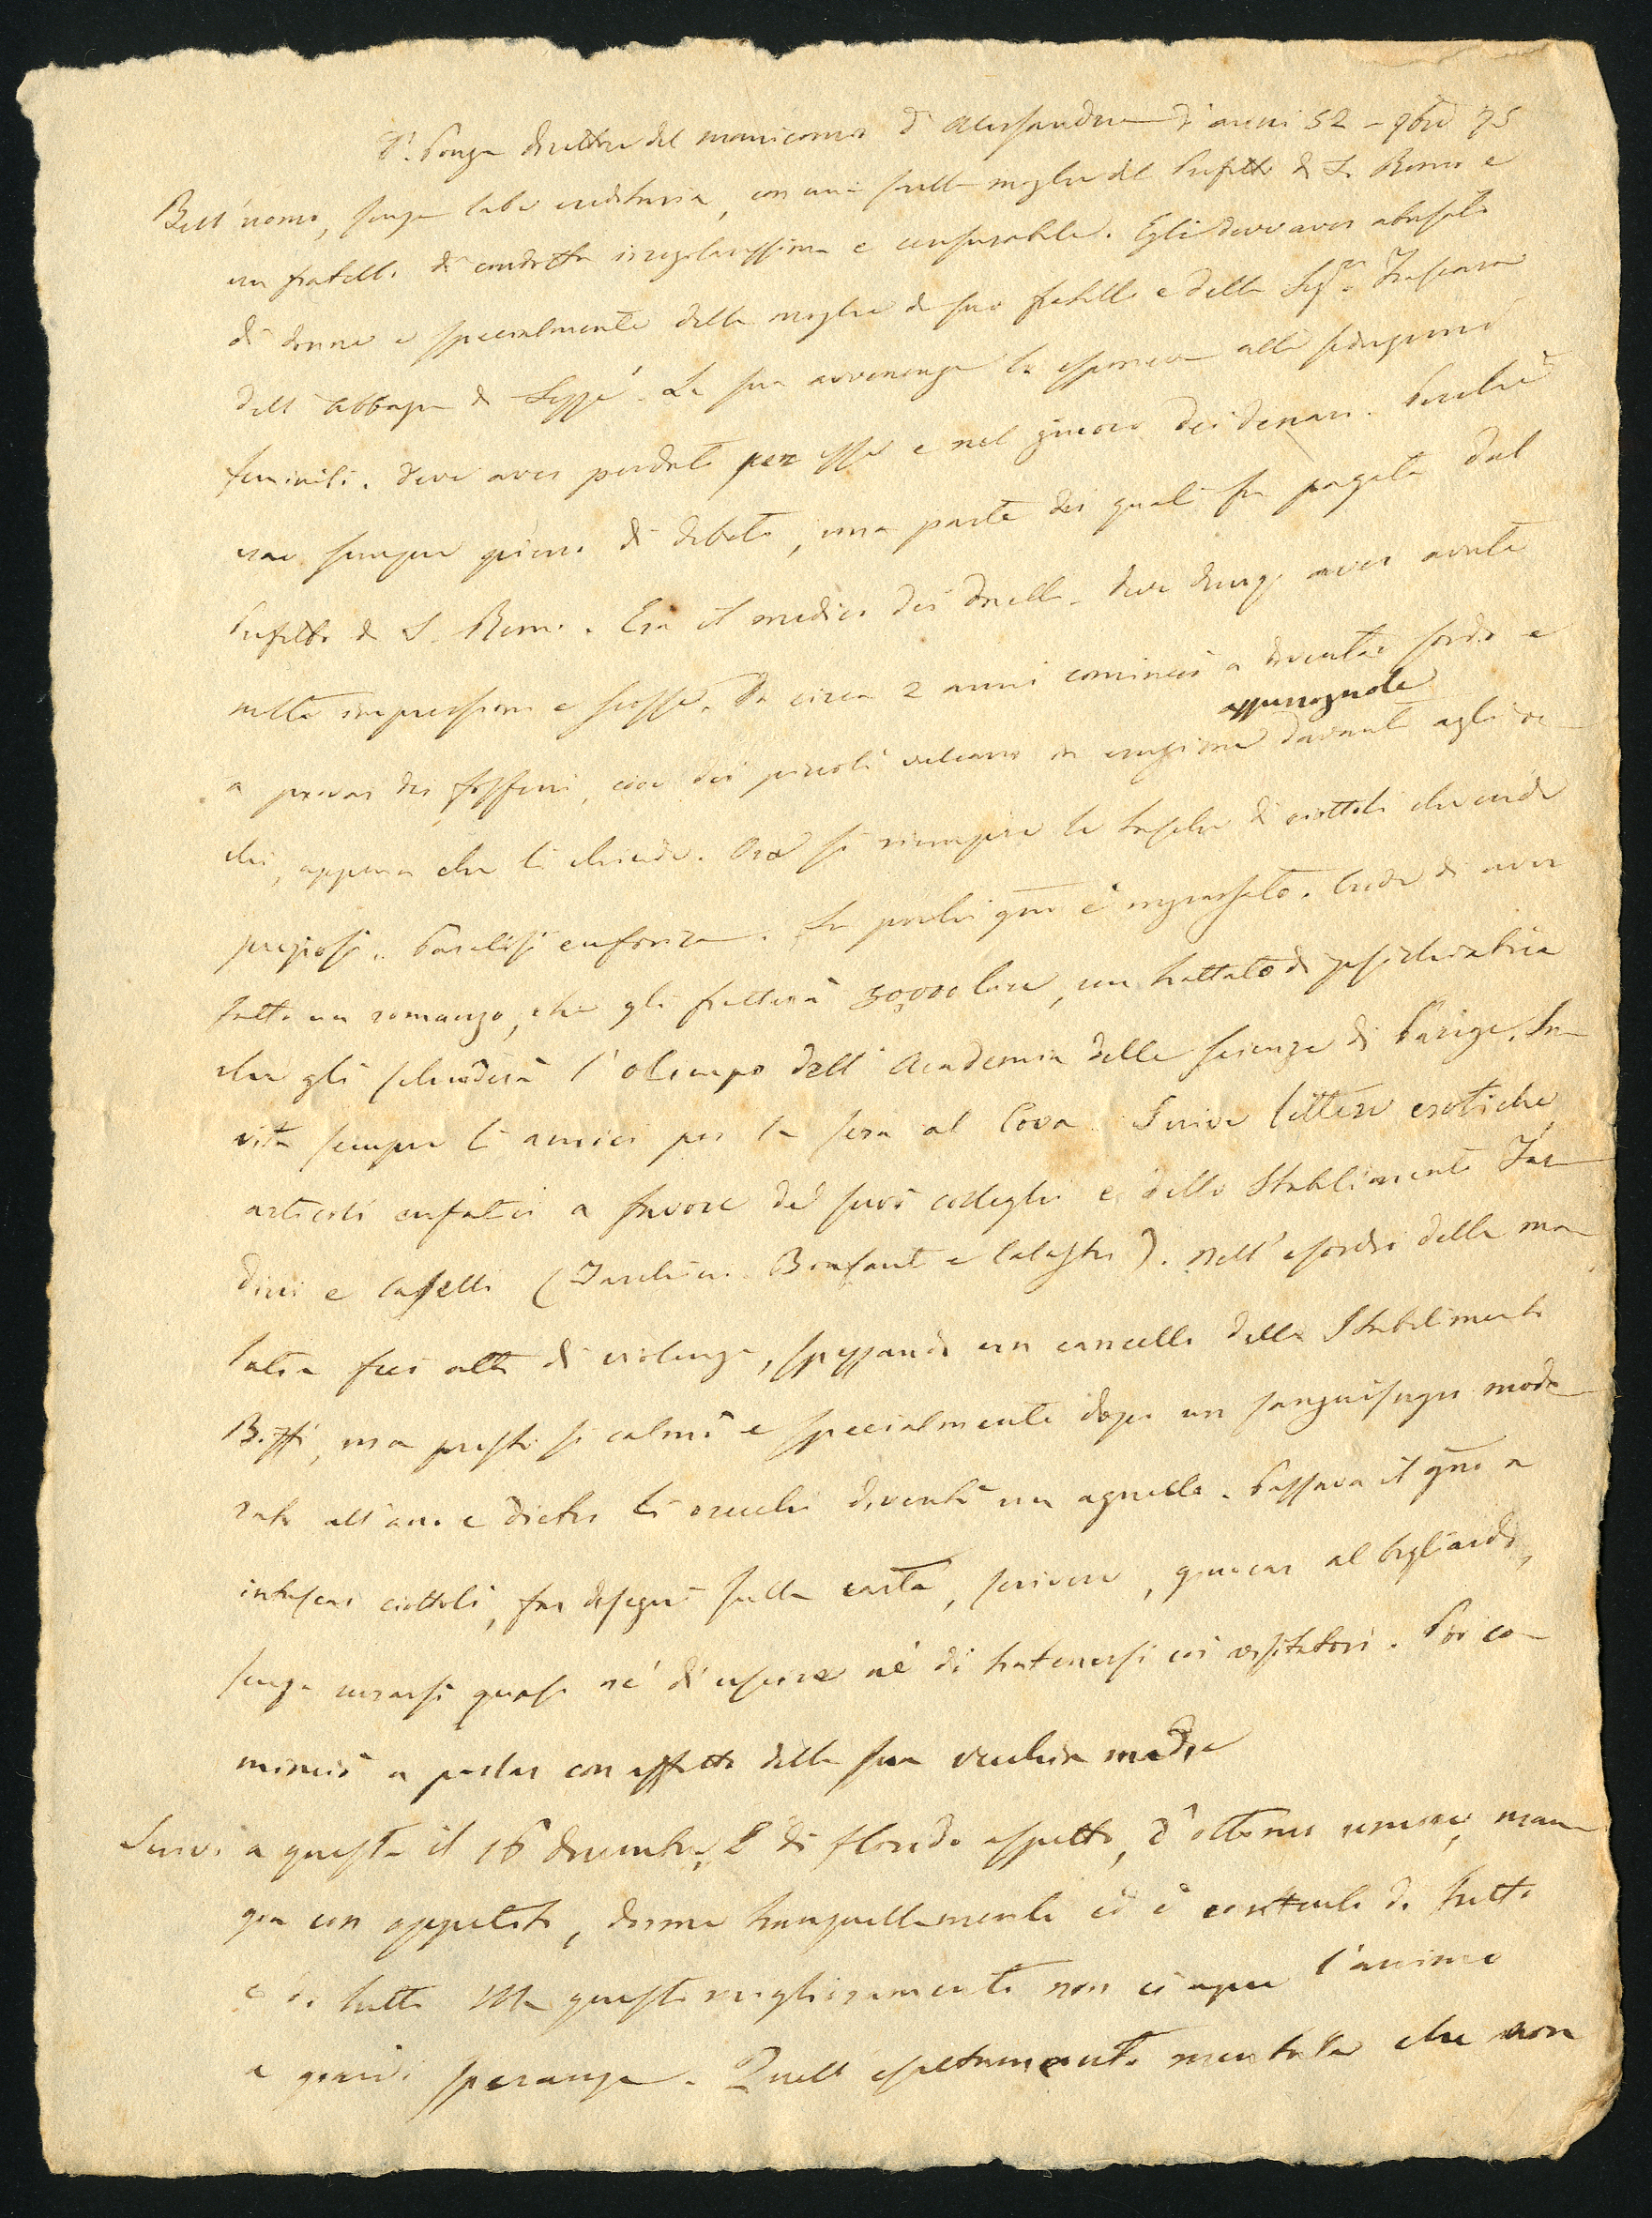 Dr. Ponza direttore del manicomio d'Alessandria d'anni 52 - 9bre 75
Bell'uomo, senza labe ereditaria, con una sorella moglie del Prefetto di S. Remo e
un fratello di condotta irregolarissima e censurabile. Egli deve aver abusato
di donne e specialmente della moglie di suo fratello e della Sigra
dell'Abbazia di Sezzé. La sua avvenenza lo esponeva alle seduzioni
feminili. Deve aver perduto per esse e nel giuoco dei denari. Perché
era sempre pieno di debiti, una parte dei quali fu pagata dal
Prefetto di S. Remo. Era il medico dei duelli. Deve dunq. aver avute
molte impressioni e scosse. Da circa 2 anni cominciò a diventar sordo e
a provar dei fosfeni, cioè dei piccoli vulcano in eruzione davanti agli oc-
chi, appena che li chiude. Ora si riempie le tasche di ciottoli che crede
preziosi. Paralisi euforica. In pochi gni è ingrassato. Crede di aver
fatto un romanzo, che gli frutterà 50,000 lire, un trattato di psichiatria
che gli schiuderà l'olimpo dell'Academia delle scienze di Parigi. In-
vita sempre li amici per la sera al Cova. Scrive lettere erotiche
articoli enfatici a favore de' suoi colleghi e dello Stabilimento
e Caselli ( Bonfanti e ). Nell'esordio della ma-
latia fece atti di violenza, spezzando un cancello dello Stabilimento
Biffi, ma presto si calmò e specialmente dopo un sanguisugio mode-
rato all'ano e dietro li orecchi diventò un agnello. Passava il gno a
intascar ciottoli, far disegni sulla carta, scrivere, giuocar al bigliardo,
senza curarsi quasi né di uscire né di trattenersi coi visitatori. Poi co-
minciò a parlar con affetto della sua vecchia madre
Scrivo a questa il 16 dicembre. È di florido aspetto, d'ottimo umore, man-
gia con appetito, dorme tranquillamente ed è contento di tutto
e di tutti. Ma questo miglioramento non ci apre l'animo
a grandi speranze. Quell' mentale che non